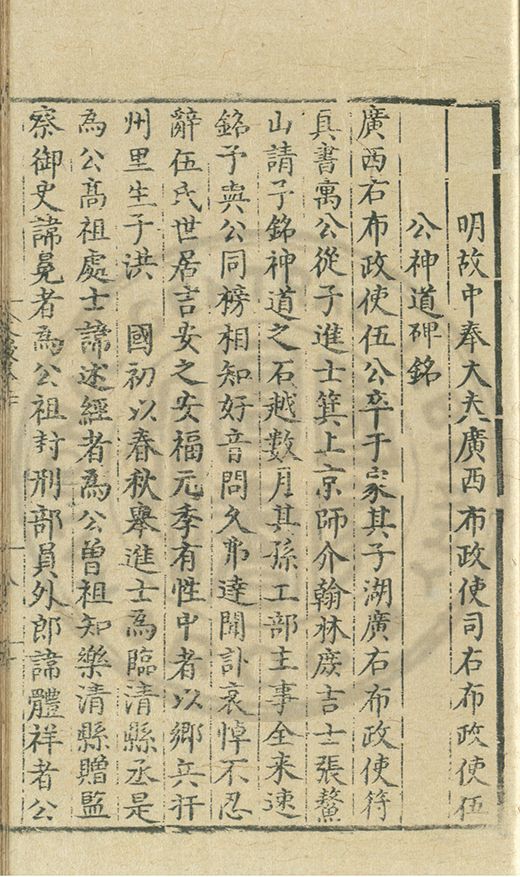 明故中奉大夫廣西布政使司右布政使伍
公神道碑銘
廣西右布政使伍公卒于家其子湖廣右布政使符
具書寓公從子進士箕上京師介翰林庶吉士張鰲
山請予銘神道之石越數月其孫工部主事全来速
銘予與公同榜相知好音問久弗達聞訃哀悼不忍
辭伍氏世居吉安之安福元季有性中者以鄉兵扞
州里生子洪 國初以春秋舉進士為臨清縣丞是
為公高祖處士諱述經者為公曾祖知樂清縣贈監
察御史諱晃者為公祖封刑部員外郎諱體祥者公